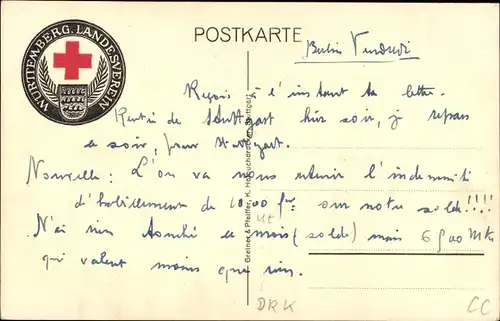 WÜRTTEMBERG. LANDESVEREIN
POSTKARTE
Berlin Vendredi
Reçois à l'instant ta lettre.
Rentré de Stuttgart hier soir, je repars
ce soir, pour Stuttgart.
Nouvelle: L'on va nous retenir l'indemnité
d'habillement de 1000 frs sur notre solde!!!!
N'ai rien touché ce mois (solde) mais 6500 Mk
qui valent moins que rien.
Greiner & Pfeiffer, K. Hofbuchdrucker, Stuttgart
DRK
CC